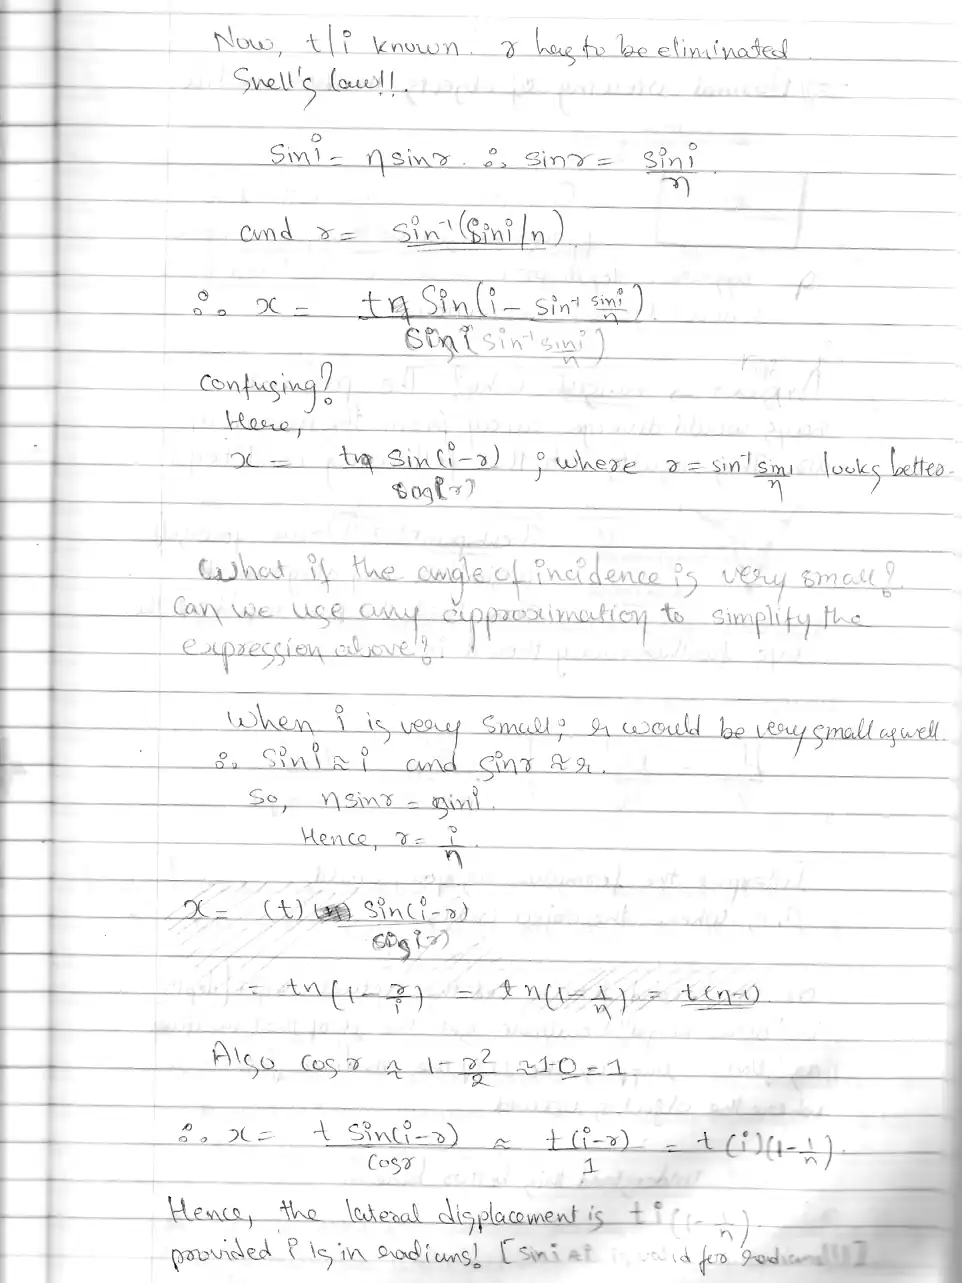 Now, t/i known. r has to be eliminated.
Snell's law!!
sin i = n sin r. ∴ sin r = sin i / n
and r = sin⁻¹(sin i/n)
∴ x = t sin(i - sin⁻¹ sin i / n) / cos(sin⁻¹ sin i / n)
confusing?
Here,
x = t sin(i-r) / cos(r) ; where r = sin⁻¹ sin i / n looks better.
What if the angle of incidence is very small?
Can we use any approximation to simplify the
expression above?
When i is very small; r would be very small as well.
∴ sin i ≈ i and sin r ≈ r.
So, n sin r = sin i.
Hence, r = i / n.
x = (t) sin(i-r) / cos(r)
= tn(1 - r/i) = tn(1 - 1/n) = t(n-1)
Also cos r ≈ 1 - r²/2 ≈ 1-0 = 1
∴ x = t sin(i-r) / cos r ≈ t(i-r) / 1 = t(i)(1 - 1/n).
Hence, the lateral displacement is ti(1 - 1/n).
provided i is in radians! [sin i ≈ i is valid for radians!!!]